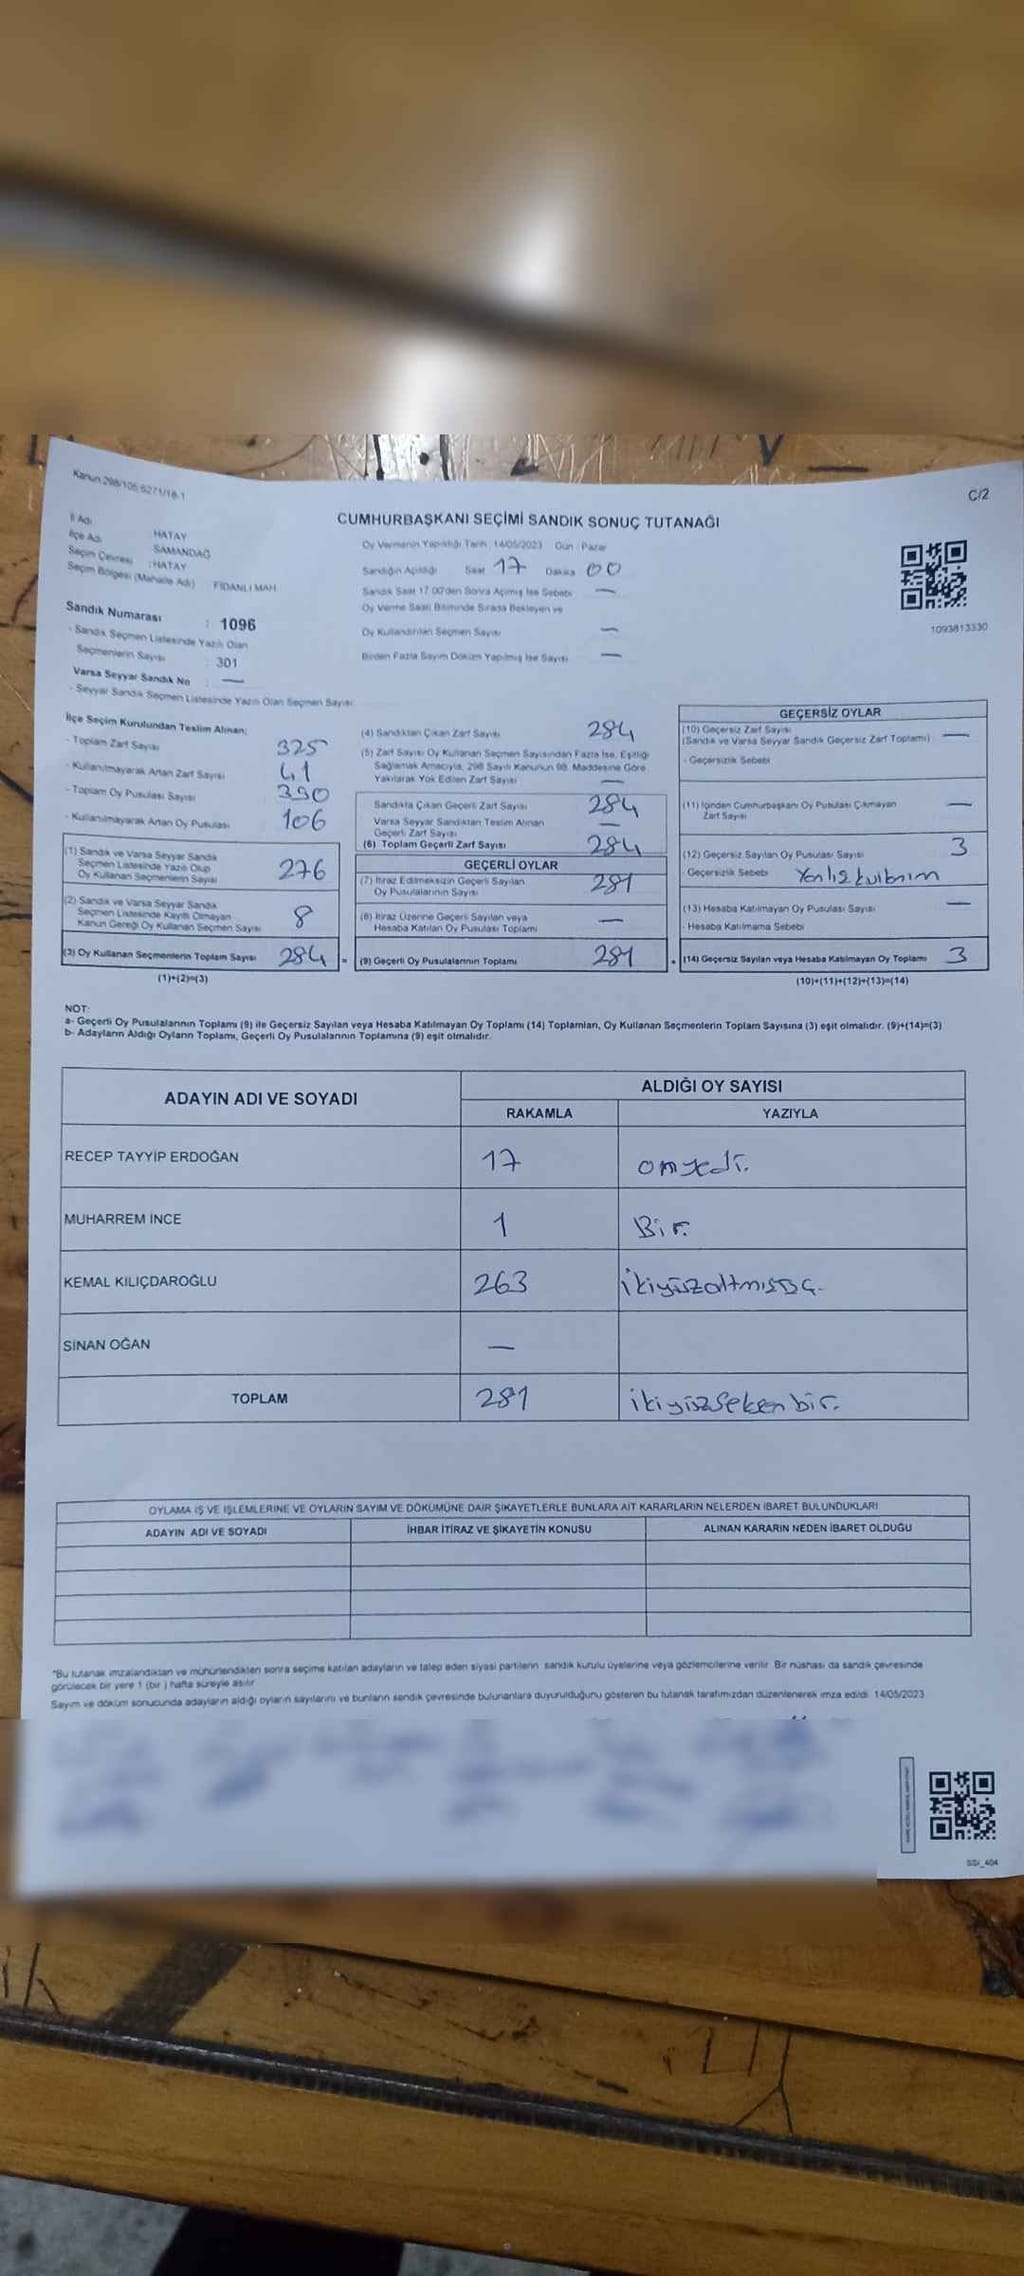 Kanun:298/105 6271/18.1
C/2
CUMHURBAŞKANI SEÇİMİ SANDIK SONUÇ TUTANAĞI
İl Adı : HATAY
İlçe Adı : SAMANDAĞ
Seçim Çevresi : HATAY
Seçim Bölgesi (Mahalle Adı) FİDANLI MAH
Sandık Numarası : 1096
- Sandık Seçmen Listesinde Yazılı Olan
Seçmenlerin Sayısı : 301
Varsa Seyyar Sandık No : —
- Seyyar Sandık Seçmen Listesinde Yazılı Olan Seçmen Sayısı
Oy Vermenin Yapıldığı Tarih : 14/05/2023 Gün : Pazar
Sandığın Açıldığı Saat 17 Dakika 00
Sandık Saat 17.00'den Sonra Açılmış İse Sebebi —
Oy Verme Saati Bitiminde Sırada Bekleyen ve
Oy Kullandırılan Seçmen Sayısı —
Birden Fazla Sayım Döküm Yapılmış İse Sayısı —
1093813330
İlçe Seçim Kurulundan Teslim Alınan;
- Toplam Zarf Sayısı 325
- Kullanılmayarak Artan Zarf Sayısı 41
- Toplam Oy Pusulası Sayısı 390
- Kullanılmayarak Artan Oy Pusulası 106
(1) Sandık ve Varsa Seyyar Sandık
Seçmen Listesinde Yazılı Olup
Oy Kullanan Seçmenlerin Sayısı 276
(2) Sandık ve Varsa Seyyar Sandık
Seçmen Listesinde Kayıtlı Olmayan
Kanun Gereği Oy Kullanan Seçmen Sayısı 8
(3) Oy Kullanan Seçmenlerin Toplam Sayısı 284 =
(1)+(2)=(3)
(4) Sandıktan Çıkan Zarf Sayısı 284
(5) Zarf Sayısı Oy Kullanan Seçmen Sayısından Fazla İse, Eşitliği
Sağlamak Amacıyla, 298 Sayılı Kanunun 98. Maddesine Göre
Yakılarak Yok Edilen Zarf Sayısı —
Sandıkta Çıkan Geçerli Zarf Sayısı 284
Varsa Seyyar Sandıktan Teslim Alınan
Geçerli Zarf Sayısı —
(6) Toplam Geçerli Zarf Sayısı 284
GEÇERLİ OYLAR
(7) İtiraz Edilmeksizin Geçerli Sayılan
Oy Pusulalarının Sayısı 281
(8) İtiraz Üzerine Geçerli Sayılan veya
Hesaba Katılan Oy Pusulası Toplamı —
(9) Geçerli Oy Pusulalarının Toplamı 281 +
GEÇERSİZ OYLAR
(10) Geçersiz Zarf Sayısı
(Sandık ve Varsa Seyyar Sandık Geçersiz Zarf Toplamı) —
- Geçersizlik Sebebi
(11) İçinden Cumhurbaşkanı Oy Pusulası Çıkmayan
Zarf Sayısı —
(12) Geçersiz Sayılan Oy Pusulası Sayısı 3
Geçersizlik Sebebi Yanlış kullanım
(13) Hesaba Katılmayan Oy Pusulası Sayısı —
- Hesaba Katılmama Sebebi
(14) Geçersiz Sayılan veya Hesaba Katılmayan Oy Toplamı 3
(10)+(11)+(12)+(13)=(14)
NOT:
a- Geçerli Oy Pusulalarının Toplamı (9) ile Geçersiz Sayılan veya Hesaba Katılmayan Oy Toplamı (14) Toplamları, Oy Kullanan Seçmenlerin Toplam Sayısına (3) eşit olmalıdır. (9)+(14)=(3)
b- Adayların Aldığı Oyların Toplamı, Geçerli Oy Pusulalarının Toplamına (9) eşit olmalıdır.
ADAYIN ADI VE SOYADI
ALDIĞI OY SAYISI
RAKAMLA YAZIYLA
RECEP TAYYİP ERDOĞAN 17 onyedi.
MUHARREM İNCE 1 Bir.
KEMAL KILIÇDAROĞLU 263 ikiyüzaltmışüç.
SİNAN OĞAN —
TOPLAM 281 ikiyüzseksenbir.
OYLAMA İŞ VE İŞLEMLERİNE VE OYLARIN SAYIM VE DÖKÜMÜNE DAİR ŞİKAYETLERLE BUNLARA AİT KARARLARIN NELERDEN İBARET BULUNDUKLARI
ADAYIN ADI VE SOYADI İHBAR İTİRAZ VE ŞİKAYETİN KONUSU ALINAN KARARIN NEDEN İBARET OLDUĞU
*Bu tutanak imzalandıktan ve mühürlendikten sonra seçime katılan adayların ve talep eden siyasi partilerin sandık kurulu üyelerine veya gözlemcilerine verilir. Bir nüshası da sandık çevresinde
görülecek bir yere 1 (bir ) hafta süreyle asılır.
Sayım ve döküm sonucunda adayların aldığı oyların sayılarını ve bunların sandık çevresinde bulunanlara duyurulduğunu gösteren bu tutanak tarafımızdan düzenlenerek imza edildi. 14/05/2023
SSI_404